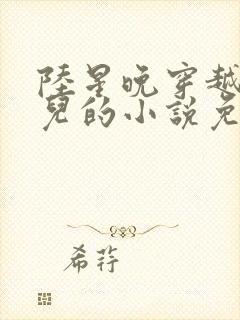 陸星晚穿越
兒的小說免
希荇